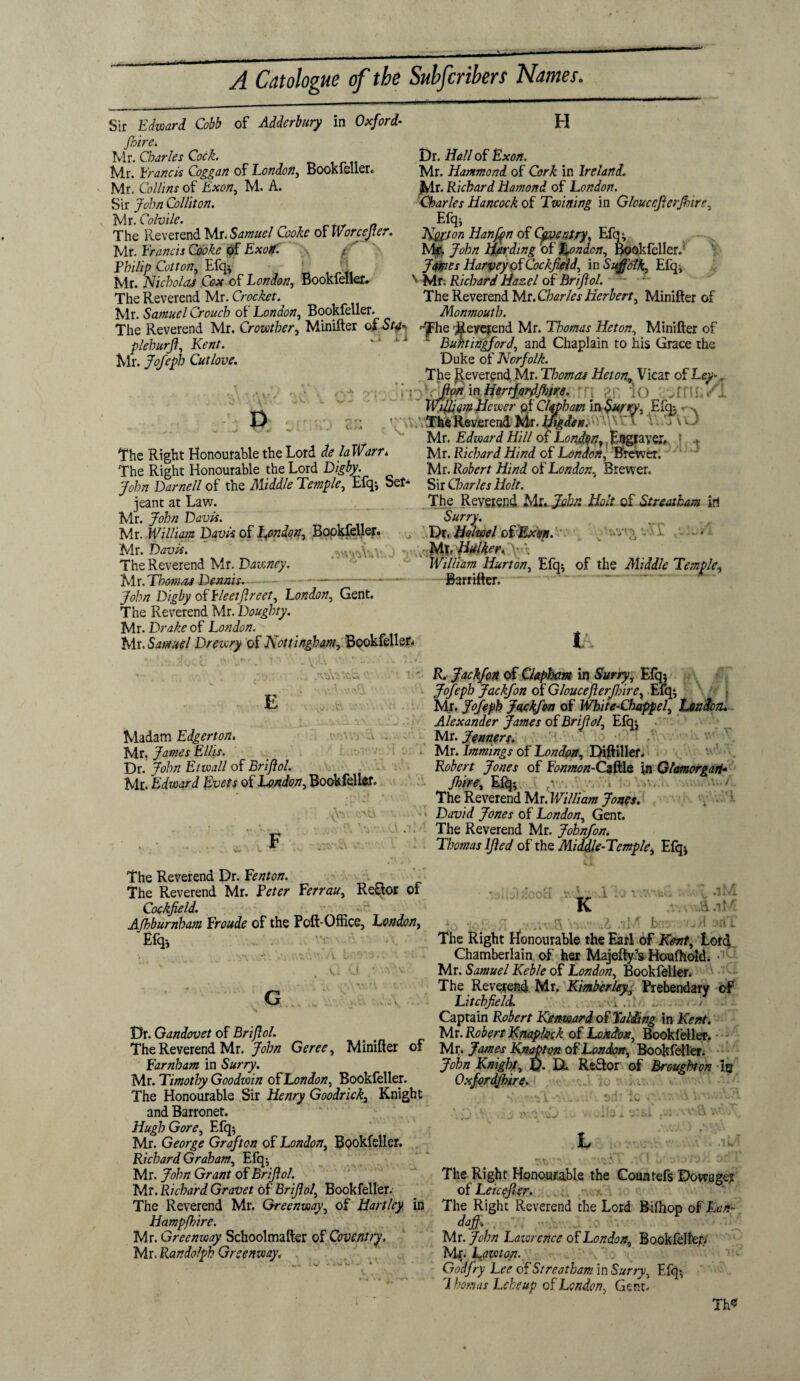 A Catologue of the Subſcribers Names.
Sir Edward Cobb of Adderbury in Oxford-
ſhire.
Mr. Charles Cock.
Mr. Francis Coggan of London, Bookſeller.
Mr. Collins of Exon, M. A.
Sir John Colliton.
Mr. Colvile.
The Reverend Mr. Samuel Cooke of Worceſter.
Mr. Francis Cooke of Exon.
Philip Cotton, Eſq;
Mr. Nicholas Cox of London, Bookſeller.
The Reverend Mr. Crocket.
Mr. Samuel Crouch of London, Bookſeller.
The Reverend Mr. Crowther, Miniſter of Sta-
plehurſt, Kent.
Mr. Joſeph Cutlove.
D
The Right Honourable the Lord de la Warr.
The Right Honourable the Lord Digby.
John Darnell of the Middle Temple, Eſq; Ser-
jeant at Law.
Mr. John Davis.
Mr. William Davis of London, Bookſeller.
Mr. Davis.
The Reverend Mr. Dawney.
Mr. Thomas Dennis.
John Digby of Fleetſtreet, London, Gent.
The Reverend Mr. Doughty.
Mr. Drake of London.
Mr. Samuel Drewry of Nottingham, Bookſeller.
E
Madam Edgerton.
Mr. James Ellis.
Dr. John Etwall of Briſtol.
Mr. Edward Evets of London, Bookſeller.
F
The Reverend Dr. Fenton.
The Reverend Mr. Peter Ferrau, Rector of
Cockfield.
Aſhburnham Froude of the Poſt-Office, London,
Eſq;
G
Dr. Gandovet of Briſtol.
The Reverend Mr. John Geree, Miniſter of
Farnham in Surry.
Mr. Timothy Goodwin of London, Bookſeller.
The Honourable Sir Henry Goodrick, Knight
and Barronet.
Hugh Gore, Eſq;
Mr. George Grafton of London, Bookſeller.
Richard Graham, Eſq;
Mr. John Grant of Briſtol.
Mr. Richard Gravet of Briſtol, Bookſeller.
The Reverend Mr. Greenway, of Hartley in
Hampſhire.
Mr. Greenway Schoolmaſter of Coventry.
Mr. Randolph Greenway.
H
Dr. Hall of Exon.
Mr. Hammond of Cork in Ireland.
Mr. Richard Hamond of London.
Charles Hancock of Twining in Gloucеſterſhire,
Eſq;
Norton Hanſon of Coventry, Eſq;
Mr. John Harding of London, Bookſeller.
James Harvey of Cockfield, in Suffolk, Eſq;
Mr. Richard Hazel of Briſtol.
The Reverend Mr. Charles Herbert, Miniſter of
Monmouth.
The Reverend Mr. Thomas Heton, Miniſter of
Buntingford, and Chaplain to his Grace the
Duke of Norfolk.
The Reverend Mr. Thomas Heton, Vicar of Ley-
ſton in Hertfordſhire.
William Hewer of Clapham in Surry, Eſq;
The Reverend Mr. Higden.
Mr. Edward Hill of London, Engraver.
Mr. Richard Hind of London, Brewer.
Mr. Robert Hind of London, Brewer.
Sir Charles Holt.
The Reverend Mr. John Holt of Streatham in
Surry.
Dr. Holwel of Exon.
Mr. Hulker.
William Hurton, Eſq; of the Middle Temple,
Barriſter.
I
R. Jackſon of Clapham in Surry, Eſq;
Joſeph Jackſon of Glouceſterſhire, Eſq;
Mr. Joſeph Jackſon of White-Chappel, London.
Alexander James of Briſtol, Eſq;
Mr. Jenners.
Mr. Immings of London, Diſtiller.
Robert Jones of Fonmon-Caſtle in Glamorgan-
ſhire, Eſq;
The Reverend Mr. William Jones.
David Jones of London, Gent.
The Reverend Mr. Johnſon.
Thomas Iſted of the Middle-Temple, Eſq;
K
The Right Honourable the Earl of Kent, Lord
Chamberlain of her Majeſty's Houſhold.
Mr. Samuel Keble of London, Bookſeller.
The Reverend Mr. Kimberley, Prebendary of
Litchfield.
Captain Robert Kenward of Yalding in Kent.
Mr. Robert Knaplock of London, Bookſeller.
Mr. James Knapton of London, Bookſeller.
John Knight, D. D. Rector of Broughton in
Oxfordſhire.
L
The Right Honourable the Counteſs Dowager
of Leiceſter.
The Right Reverend the Lord Biſhop of Lan-
daff.
Mr. John Lawrence of London, Bookſeller.
Mr. Lawton.
Godfry Lee of Streatham in Surry, Eſq;
Thomas Leheup of London, Gent.
The